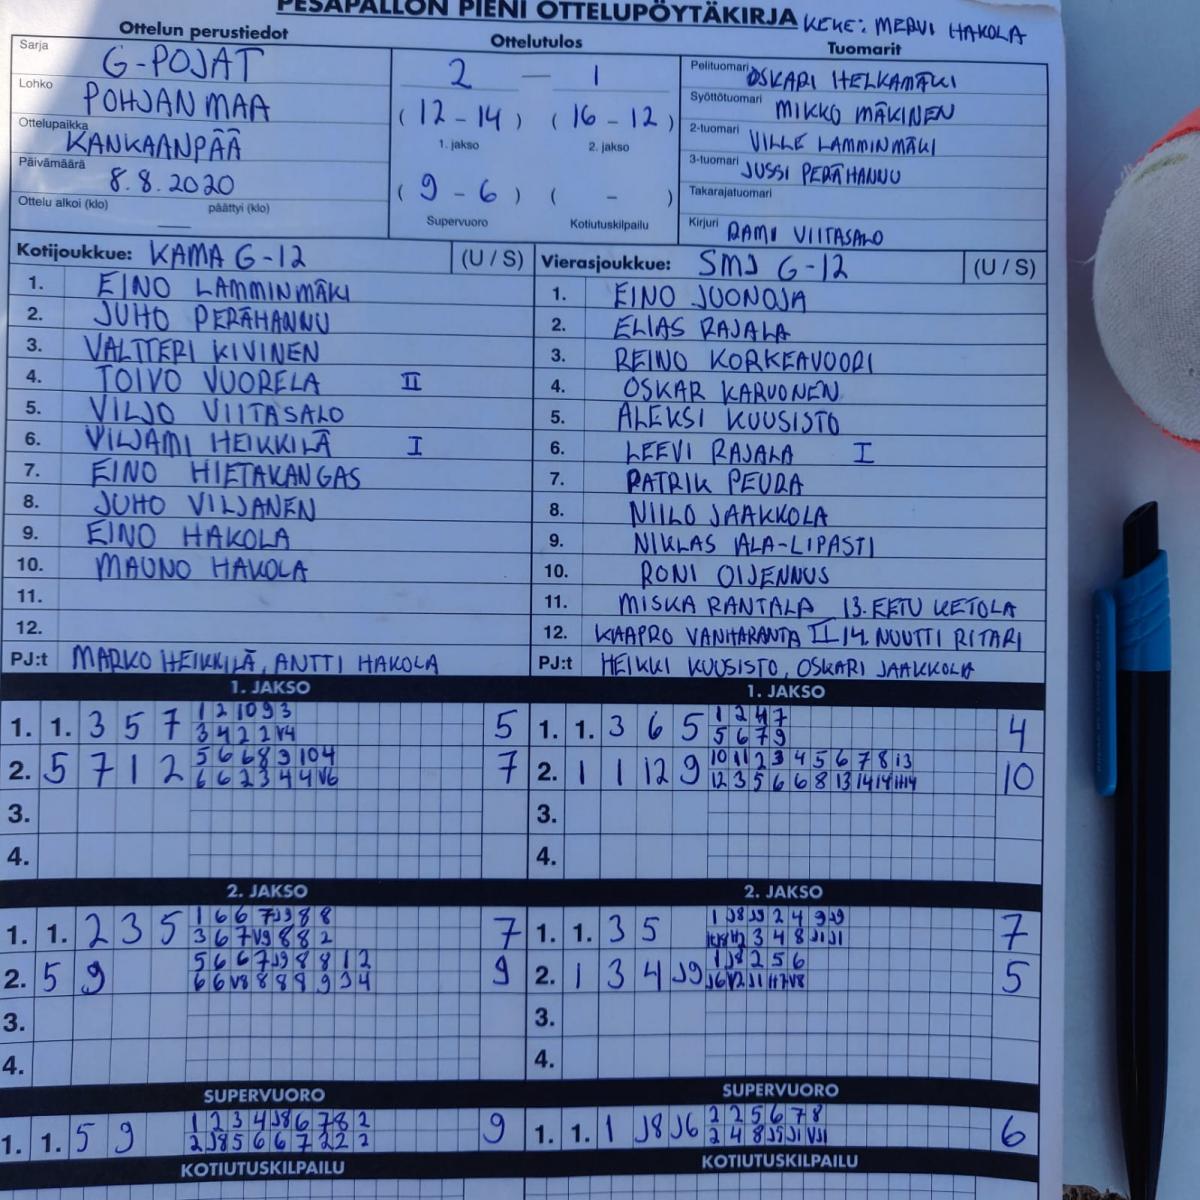 PESÄPALLON PIENI OTTELUPÖYTÄKIRJA KEKE: MERVI HAKOLA
Ottelun perustiedot
Sarja G-POJAT
Lohko POHJANMAA
Ottelupaikka KANKAANPÄÄ
Päivämäärä 8.8.2020
Ottelu alkoi (klo) päättyi (klo)
Ottelutulos
2 — 1
(12-14) (16-12)
1. jakso 2. jakso
(9-6) ( - )
Supervuoro Kotiutuskilpailu
Tuomarit
Pelituomari OSKARI HELKAMÄKI
Syöttötuomari MIKKO MÄKINEN
2-tuomari VILLE LAMMINMÄKI
3-tuomari JUSSI PERÄHANNU
Takarajatuomari
Kirjuri RAMI VIITASALO
Kotijoukkue: KAMA G-12 (U / S)
1. EINO LAMMINMÄKI
2. JUHO PERÄHANNU
3. VALTTERI KIVINEN
4. TOIVO VUORELA II
5. VILJO VIITASALO
6. VILJAMI HEIKKILÄ I
7. EINO HIETAKANGAS
8. JUHO VILJANEN
9. EINO HAKOLA
10. MAUNO HAKOLA
11.
12.
PJ:t MARKO HEIKKILÄ, ANTTI HAKOLA
Vierasjoukkue: SMJ G-12 (U / S)
1. EINO JUONOJA
2. ELIAS RAJALA
3. REINO KORKEAVUORI
4. OSKAR KARVONEN
5. ALEKSI KUUSISTO
6. LEEVI RAJALA I
7. PATRIK PEURA
8. NIILO JAAKKOLA
9. NIKLAS ALA-LIPASTI
10. RONI OIJENNUS
11. MISKA RANTALA 13. EETU KETOLA
12. KAAPRO VANHARANTA II 14. NUUTTI RITARI
PJ:t HEIKKI KUUSISTO, OSKARI JAAKKOLA
1. JAKSO
1. 1. 3 5 7 1 2 10 9 3 5
3 4 2 2 V4
2. 5 7 1 2 5 6 6 8 9 10 4 7
6 6 2 3 4 4 V6
3.
4.
1. JAKSO
1. 1. 3 6 5 1 2 4 7 4
5 6 7 9
2. 1 1 12 9 10 11 2 3 4 5 6 7 8 13 10
12 3 5 6 6 8 13 14 14
3.
4.
2. JAKSO
1. 1. 2 3 5 1 6 6 7 J9 8 8 7
3 6 7 V9 8 8 2
2. 5 9 5 6 6 7 J9 8 8 1 2 9
6 6 V8 8 8 8 9 3 4
3.
4.
2. JAKSO
1. 1. 3 5 1 J8 J9 2 4 9 J9 7
3 4 8 J1 J1
2. 1 3 4 J9 1 J8 2 5 6 5
J6 V2 J1
3.
4.
SUPERVUORO
1. 1. 5 9 1 2 3 4 J8 6 7 8 2 9
2 J8 5 6 6 7 2 2 2
SUPERVUORO
1. 1. 1 J8 J6 2 2 5 6 7 8 6
2 4 8 J9 J1 VJ1
KOTIUTUSKILPAILU
KOTIUTUSKILPAILU